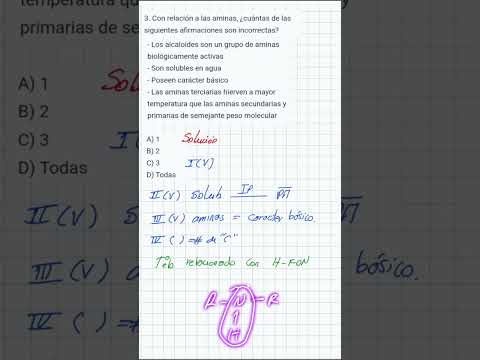 temperatura que
primarias de sem
A) 1
B) 2
C) 3
D) Todas
3. Con relación a las aminas, ¿cuántas de las
siguientes afirmaciones son incorrectas?
- Los alcaloides son un grupo de aminas
biológicamente activas
- Son solubles en agua
- Poseen carácter básico
- Las aminas terciarias hierven a mayor
temperatura que las aminas secundarias y
primarias de semejante peso molecular
A) 1 Solución
B) 2
C) 3 I (V)
D) Todas
II (V) solub IP
III (V) aminas = caracter básico.
IV ( ) = # de "C"
Teb relacionado con H-FON
R - N - R
H
secundarias y
peso molecular
básico.